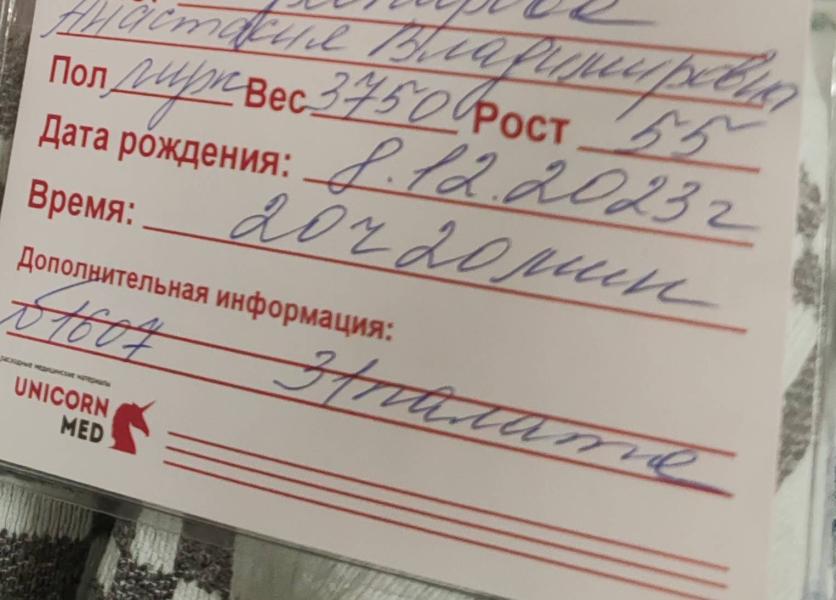 Анастасия Владимировна
Пол муж Вес 3750 Рост 55
Дата рождения: 8.12.2023г
Время: 20ч 20мин
Дополнительная информация:
1607 31 палата
расходные медицинские материалы
UNICORN
MED